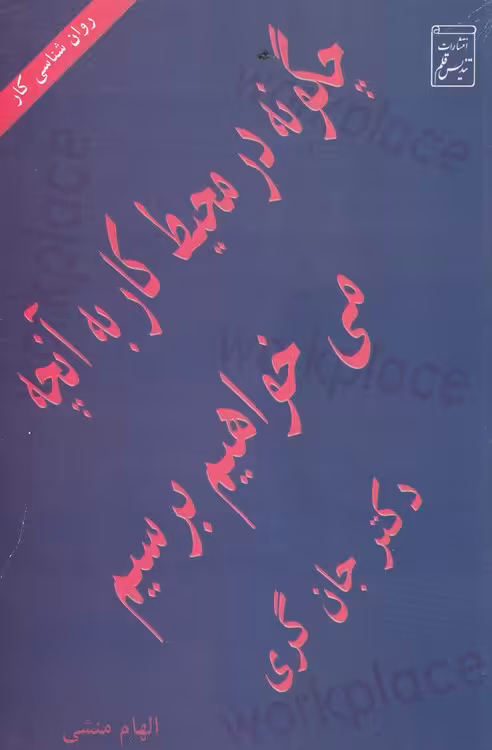 روان شناسی کار
انتشارات
تندیس قلم
چگونه در محیط کار به آنچه
می خواهیم برسیم
دکتر جان گری
الهام منشی
workplace
workplace
workplace
workplace